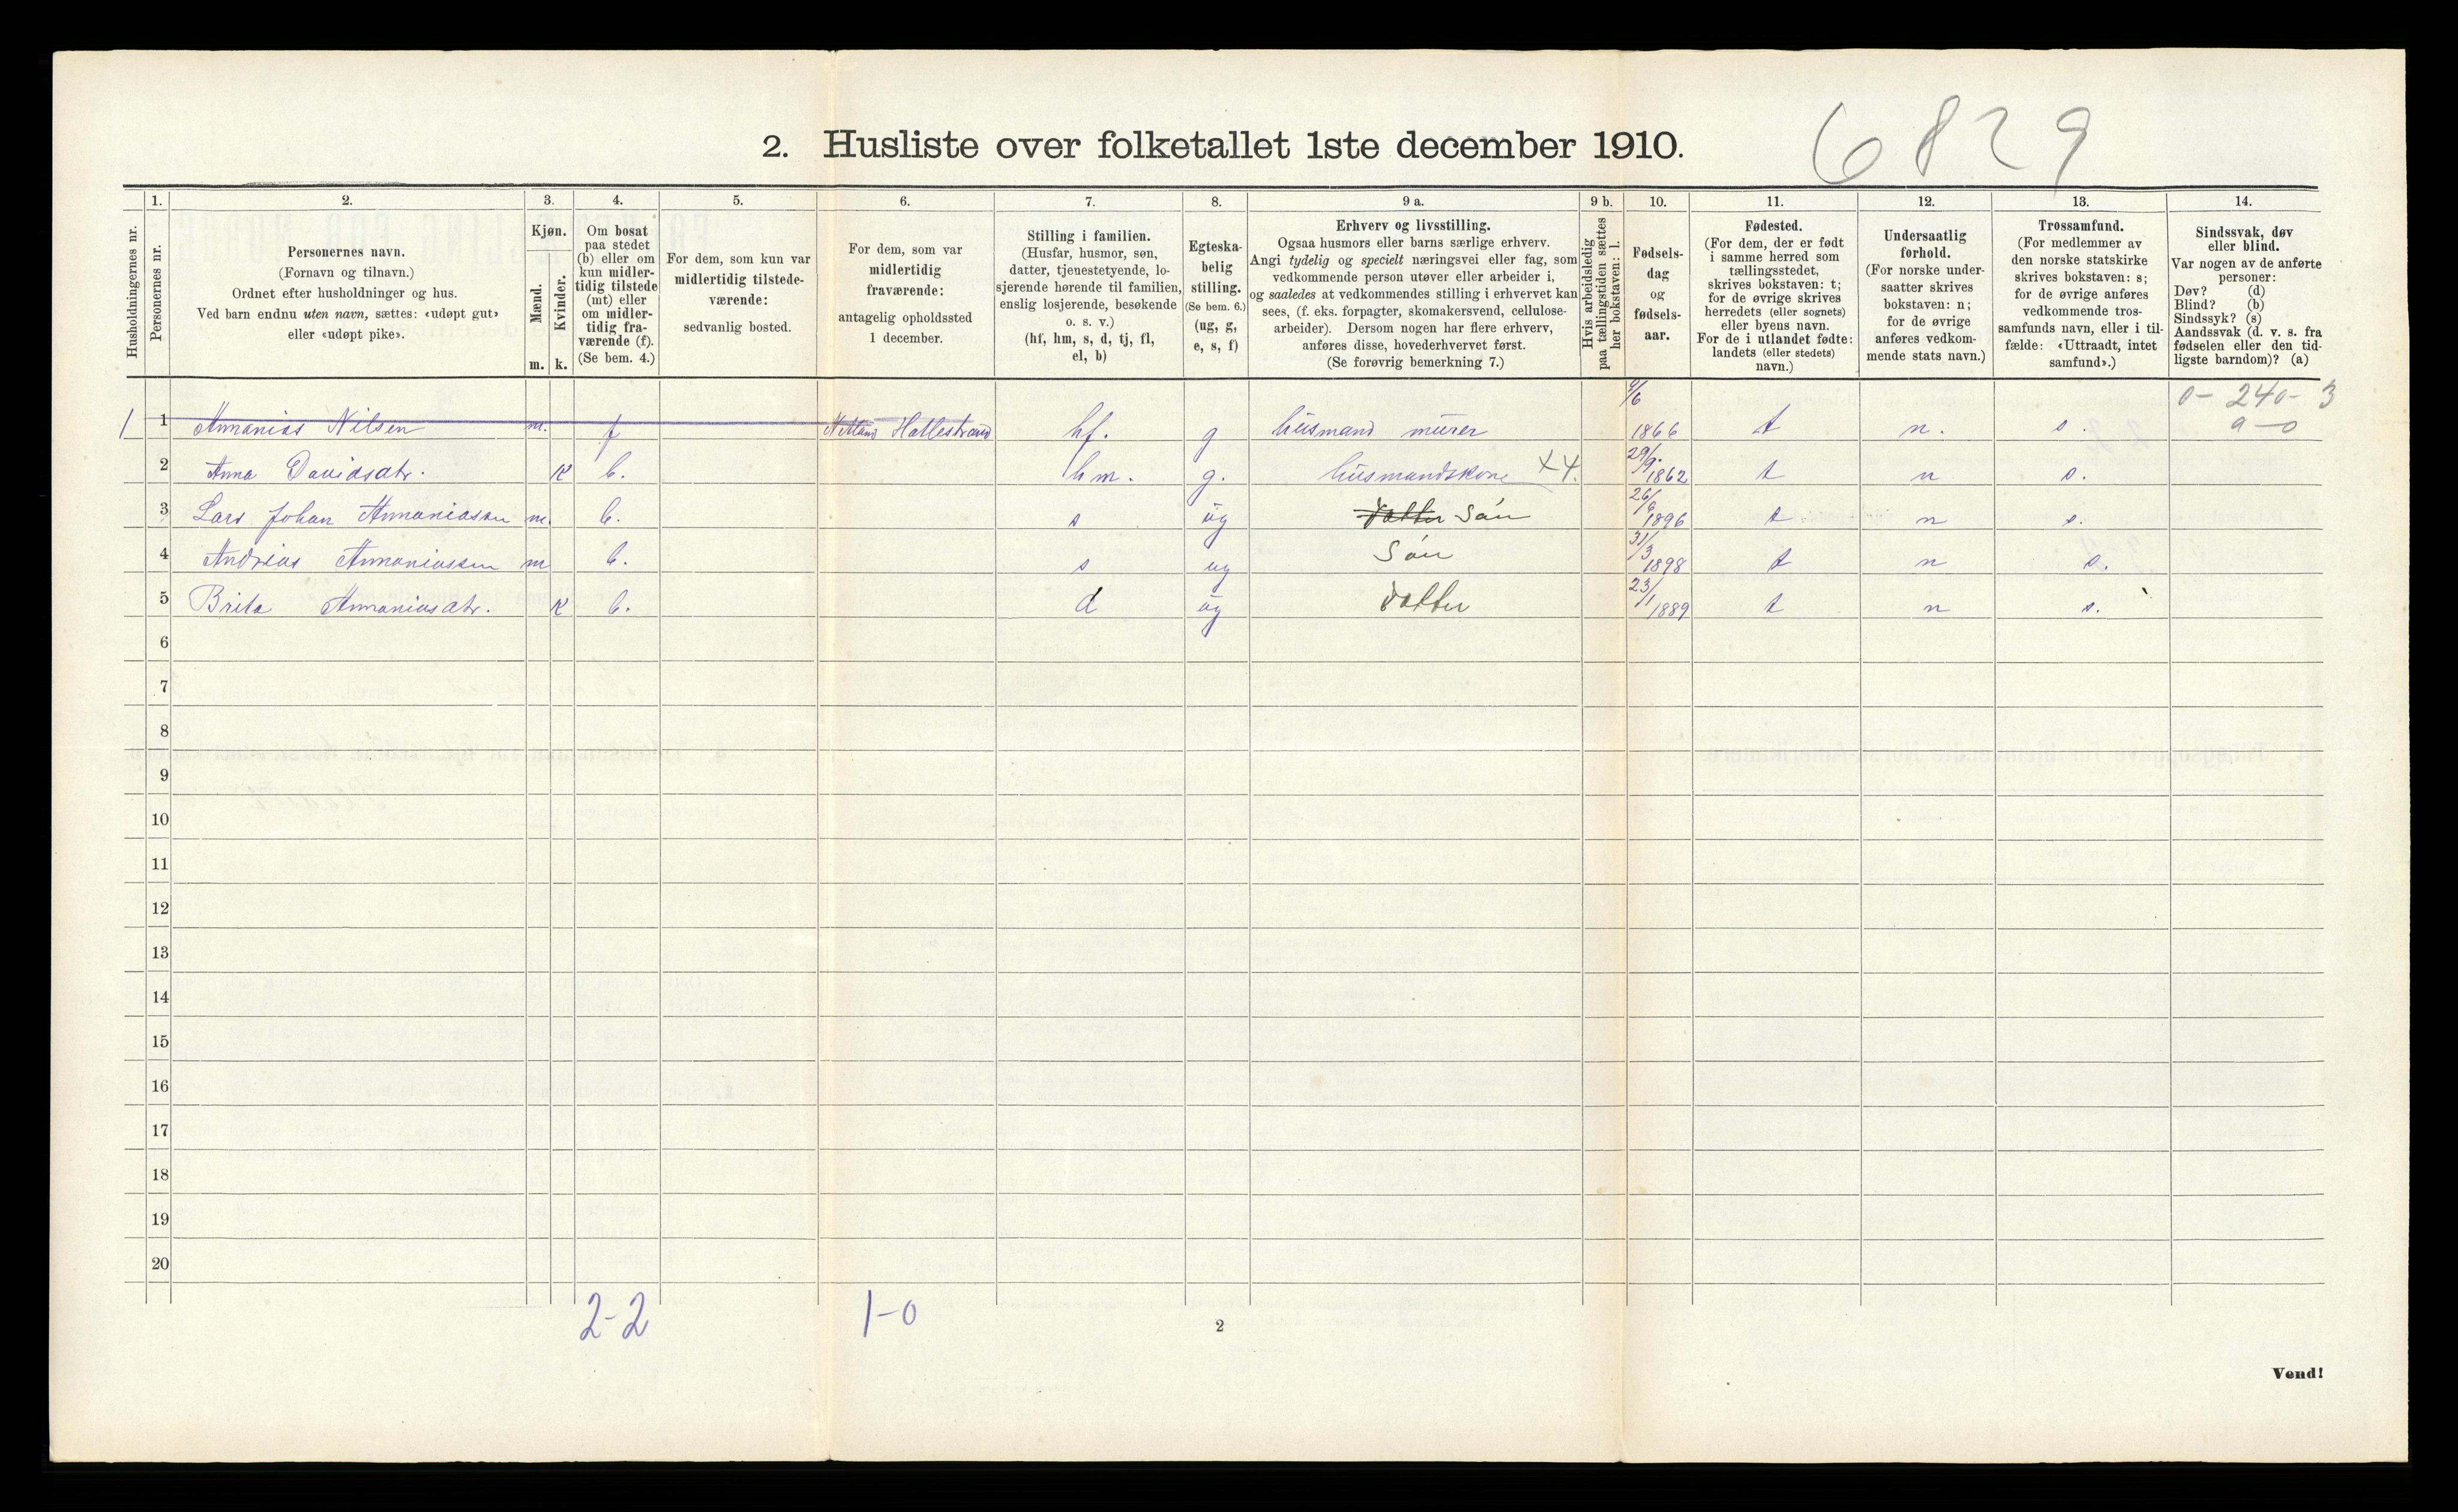 6829
2. Husliste over folketallet 1ste december 1910.
Husholdningernes nr.
1.
Personernes nr.
2.
Personernes navn.
(Fornavn og tilnavn.)
Ordnet efter husholdninger og hus.
Ved barn endnu uten navn, sættes: «udøpt gut»
eller «udøpt pike».
3.
Kjøn.
Mænd.
m.
Kvinder.
k.
4.
Om bosat
paa stedet
(b) eller om
kun midler-
tidig tilstede
(mt) eller
om midler-
tidig fra-
værende (f).
(Se bem. 4.)
5.
For dem, som kun var
midlertidig tilstede-
værende:
sedvanlig bosted.
6.
For dem, som var
midlertidig
fraværende:
antagelig opholdssted
1 december.
7.
Stilling i familien.
(Husfar, husmor, søn,
datter, tjenestetyende, lo-
sjerende hørende til familien,
enslig losjerende, besøkende
o. s. v.)
(hf, hm, s, d, tj, fl,
el, b)
8.
Egteska-
belig
stilling.
(Se bem. 6.)
(ug, g,
e, s, f)
9 a.
Erhverv og livsstilling.
Ogsaa husmors eller barns særlige erhverv.
Angi tydelig og specielt næringsvei eller fag, som
vedkommende person utøver eller arbeider i,
og saaledes at vedkommendes stilling i erhvervet kan
sees, (f. eks. forpagter, skomakersvend, cellulose-
arbeider). Dersom nogen har flere erhverv,
anføres disse, hovederhvervet først.
(Se forøvrig bemerkning 7.)
9 b.
Hvis arbeidsledig
paa tællingstiden sættes
her bokstaven: l.
10.
Fødsels-
dag
og
fødsels-
aar.
11.
Fødested.
(For dem, der er født
i samme herred som
tællingsstedet,
skrives bokstaven: t;
for de øvrige skrives
herredets (eller sognets)
eller byens navn.
For de i utlandet fødte:
landets (eller stedets)
navn.)
12.
Undersaatlig
forhold.
(For norske under-
saatter skrives
bokstaven: n;
for de øvrige
anføres vedkom-
mende stats navn.)
13.
Trossamfund.
(For medlemmer av
den norske statskirke
skrives bokstaven: s;
for de øvrige anføres
vedkommende tros-
samfunds navn, eller i til-
fælde: «Uttraadt, intet
samfund».)
14.
Sindssvak, døv
eller blind.
Var nogen av de anførte
personer:
Døv? (d)
Blind? (b)
Sindssyk? (s)
Aandssvak (d. v. s. fra
fødselen eller den tid-
ligste barndom)? (a)
0-240-3
a-0
1 1 Annanias Nilsen m. f Hattestrand hf. g husmand murer 1866 t n. s.
2 Anna Davidsdtr. K b. hm. g. husmandskone X4. 29/9. 1862 t n s.
3 Lars Johan Annaniassen m. b. s ug datter Søn 26/6 1896 t n s.
4 Andrias Annaniassen m b. s ug Søn 31/3 1898 t n s.
5 Brita Annaniasdtr. K b. d ug datter 23/1 1889 t n s.
6
7
8
9
10
11
12
13
14
15
16
17
18
19
20
2-2 1-0
2
Vend!